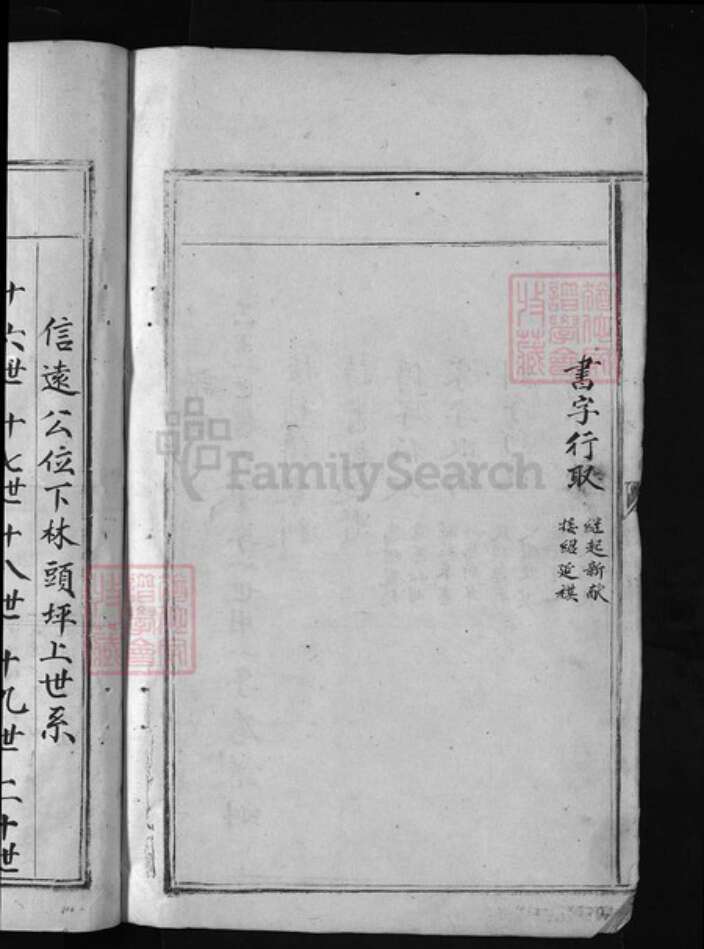 書字行取
繼起新猷
接緦延祺
信遠公位下林頭坪上世系
十六世 十七世 十八世 十九世 二十世
FamilySearch